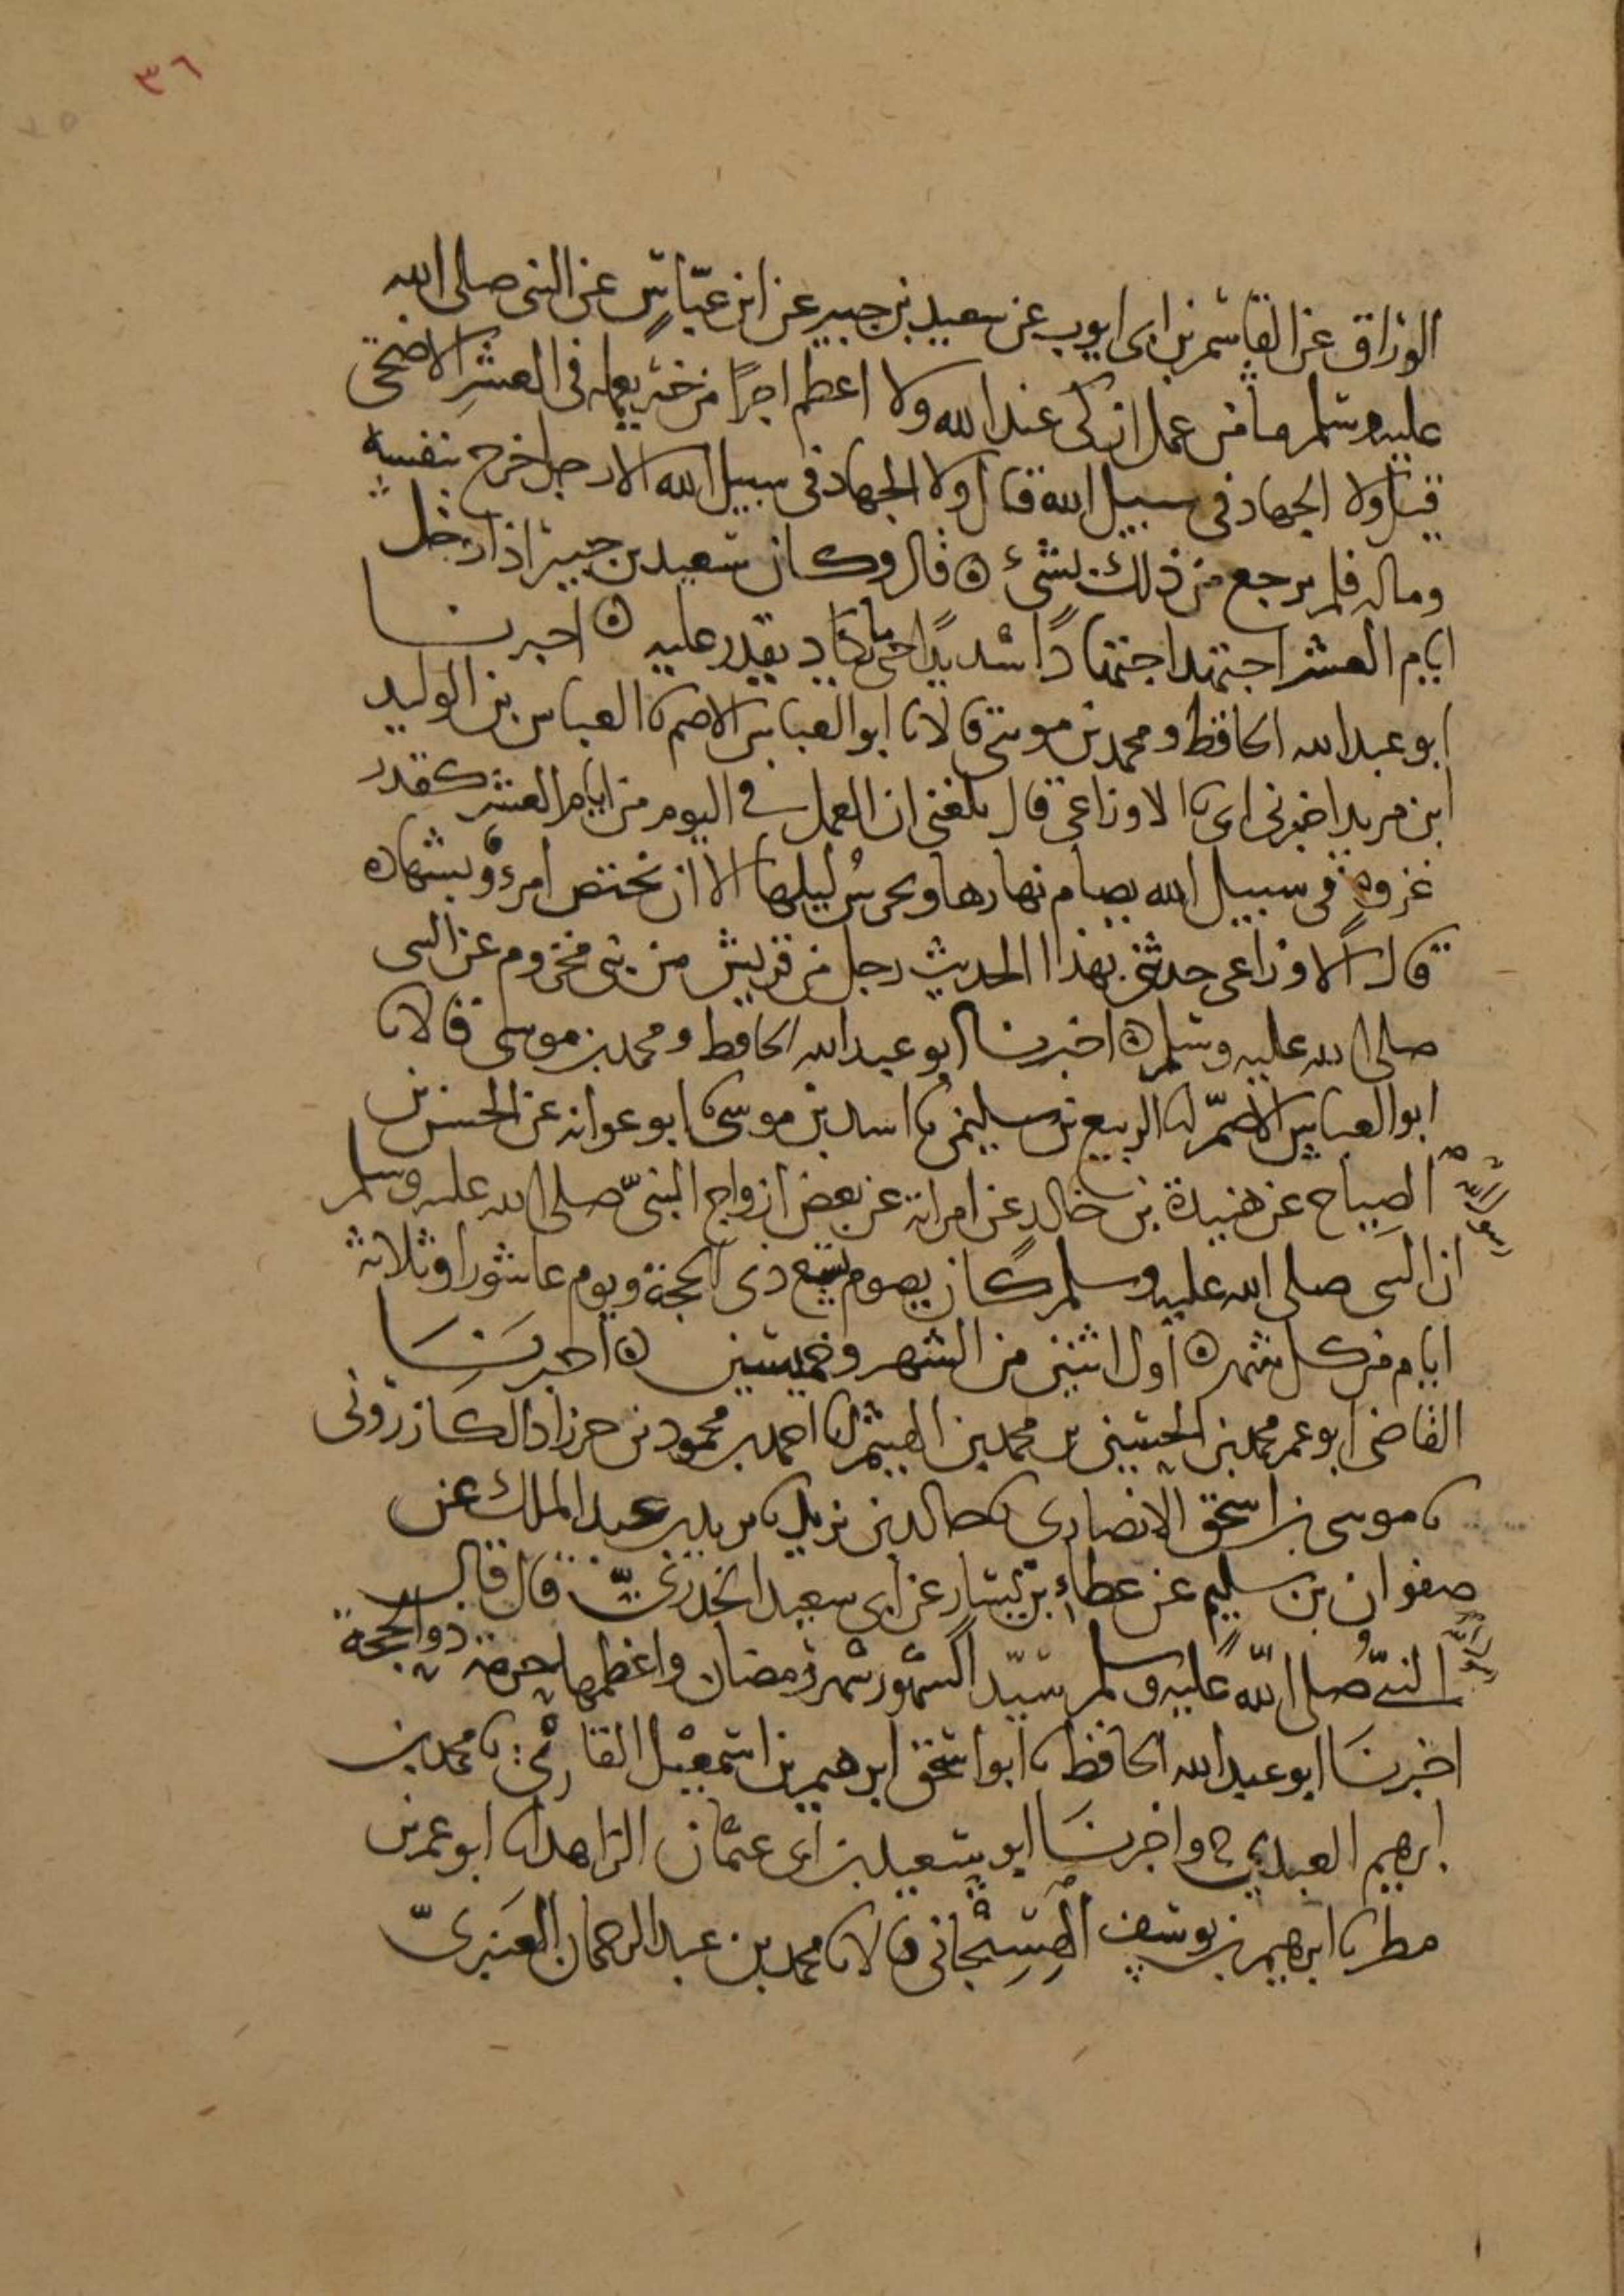 ٣٦
الوزاق عن القاسم بن ابى ايوب عن سعيد بن جبير عن ابن عباس عن النبى صلى الله
عليه وسلم ما من عمل ازكى عند الله ولا اعظم اجرًا من خير يعمله فى العشر الاضحى
قيل ولا الجهاد فى سبيل الله قال ولا الجهاد فى سبيل الله الا رجل خرج بنفسه
وماله فلم يرجع من ذلك بشىء ٥ قال وكان سعيد بن جبير اذا دخل
ايام العشر اجتهد اجتهادًا شديدًا حتى ما يكاد يقدر عليه ٥ اخبرنا
ابو عبد الله الحافظ ومحمد بن موسى قالا نا ابو العباس الاصم نا العباس بن الوليد
ابن مزيد اخبرنى ابى نا الاوزاعى قال بلغنى ان العمل فى اليوم من ايام العشر كقدر
غزوة فى سبيل الله يصام نهارها ويحرس ليلها الا ان يختص امرؤ بشهادة
قال الاوزاعى حدثنى بهذا الحديث رجل من قريش من بنى مخزوم عن النبى
صلى الله عليه وسلم ٥ اخبرنا ابو عبد الله الحافظ ومحمد بن موسى قالا نا
ابو العباس الاصمّ نا الربيع بن سليمن نا اسد بن موسى نا ابو عوانه عن الحسن بن
الصياح عن هنيدة بن خالد عن امراته عن بعض ازواج النبىّ صلى الله عليه وسلم
ان النبى صلى الله عليه وسلم كان يصوم تسع ذى الحجة ويوم عاشورا وثلاثة
ايام من كل شهر ٥ اول اثنين من الشهر وخميسين ٥ اخبرنا
القاضى ابو عمر محمد بن الحسين بن محمد بن الهيثم نا احمد بن محمود بن خرزاذ الكازرونى
نا موسى بن اسحق الانصارى نا خالد بن يزيد نا يزيد بن عبد الملك عن
صفوان بن سليم عن عطاء بن يسار عن ابى سعيد الخدرىّ قال قال
النبىّ صلى الله عليه وسلم سيّد الشهور شهر رمضان واعظمها حرمة ذو الحجة
اخبرنا ابو عبد الله الحافظ نا ابو اسحق ابرهيم بن اسمعيل القارئ نا محمد بن
ابرهيم العبدي ح واخبرنا ابو سعيد بن ابى عثمان الزاهد نا ابو عمر بن
مطر نا ابرهيم بن يوسف الهِسِنْجانى قالا نا محمد بن عبد الرحمان العنبرىّ